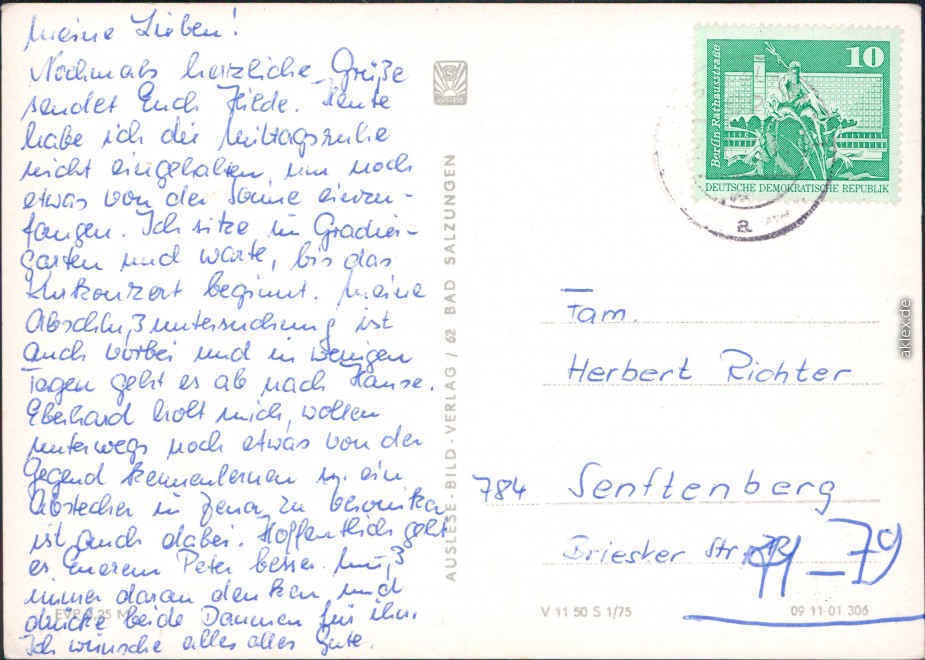 Meine Lieben!
Nochmals herzliche Grüße
sendet Euch Hilde. Heute
habe ich die Mittagsruhe
nicht eingehalten, um noch
etwas von der Sonne einzu-
fangen. Ich sitze im Gradier-
garten und warte, bis das
Kurkonzert beginnt. Meine
Abschlußuntersuchung ist
auch vorbei und in wenigen
Tagen geht es ab nach Hause.
Eberhard holt mich, wollen
unterwegs noch etwas von der
Gegend kennenlernen u. ein
Abstecher in Jena zu Veronika
ist auch dabei. Hoffentlich geht
es Eurem Peter besser. Muß
immer daran denken und
drücke beide Daumen für ihn.
Ich wünsche alles alles Gute.
EVP 0,25 M
AUSLESE
AUSLESE-BILD-VERLAG / 62 BAD SALZUNGEN
10
Berlin-Rathausstraße
DEUTSCHE DEMOKRATISCHE REPUBLIK
a
Fam.
Herbert Richter
784 Senftenberg
Briesker Str.
79
V 11 50 S 1/75
09 11 01 306
aklex.de